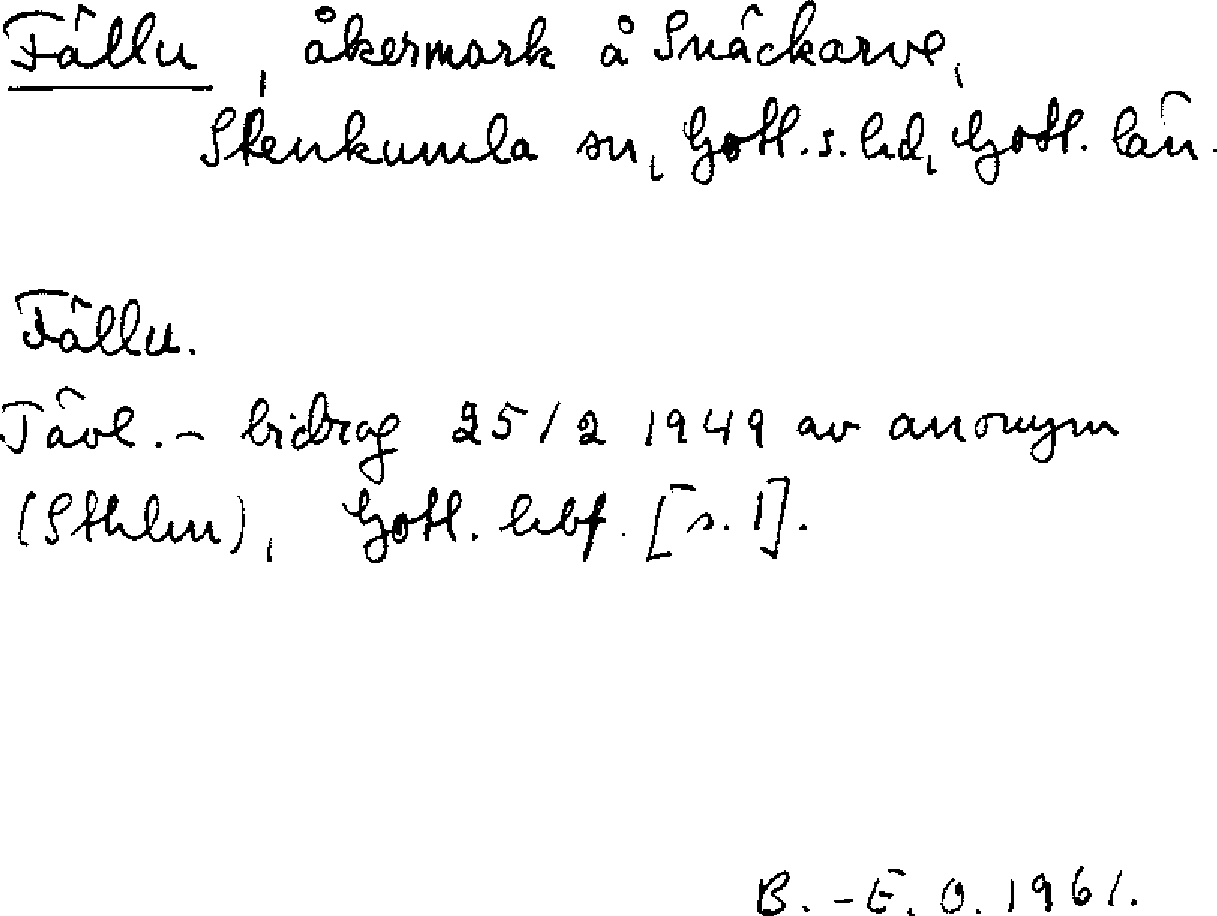 Fällu, åkermark å Snäckarve,
Stenkumla sn, Gotl. s. hd, Gotl. län.
Fällu.
Tävl. - bidrag 25/2 1949 av anonym
(Sthlm), Gotl. hbf. [s. 1].
B.-E. O. 1961.